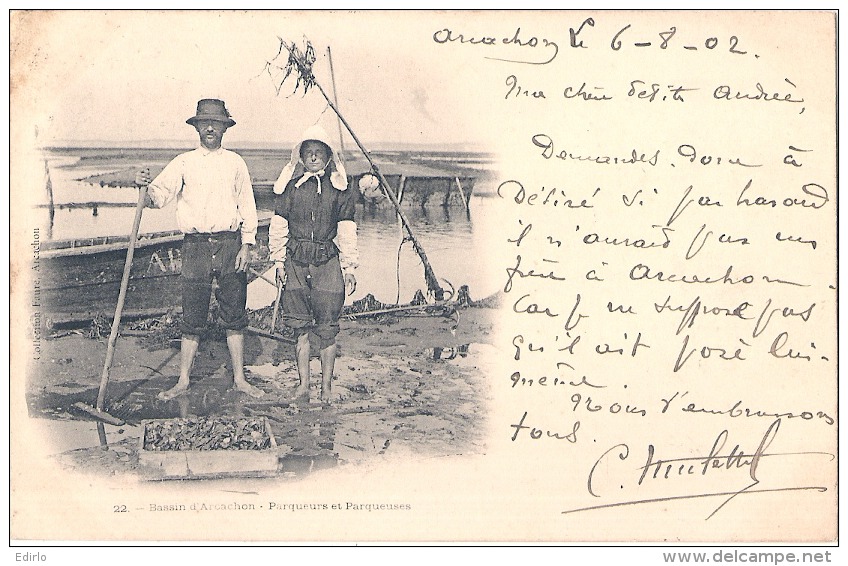 Arcachon Le 6-8-02.
Ma chère petite Andrée,
Demandes donc à
Désiré si par hasard
il n'aurait pas un
frère à Arcachon
Car je ne suppose pas
qu'il ait posé lui-
même.
Nous t'embrassons
tous.
C.
Collection Faure, Arcachon
22. — Bassin d'Arcachon - Parqueurs et Parqueuses
Edirlo
http://www.delcampe.net